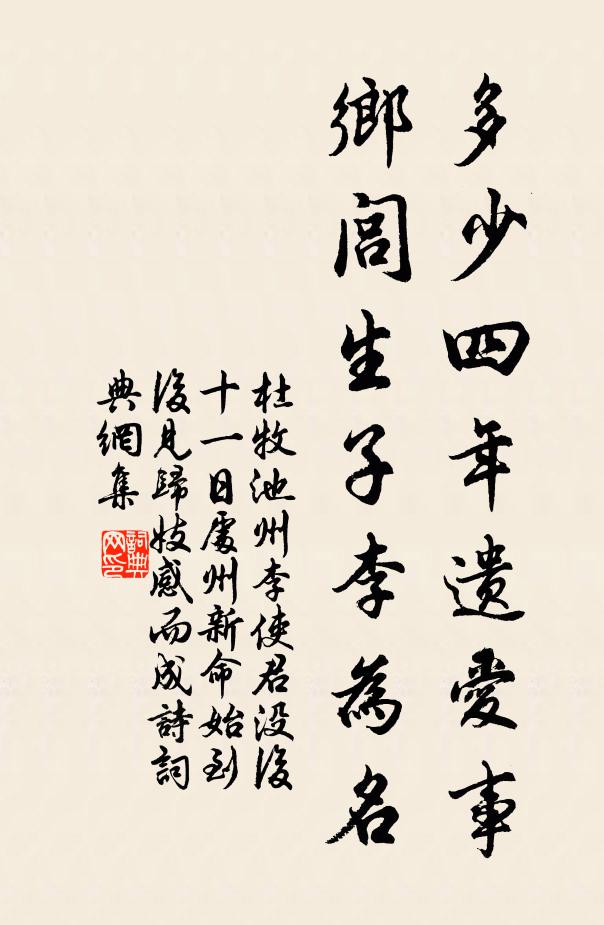 多少四年遺愛事
鄉閭生子李為名
杜牧池州李使君没後
十一日處州新命始到
後見歸妓感而成詩詞
典網集
詞典
网印